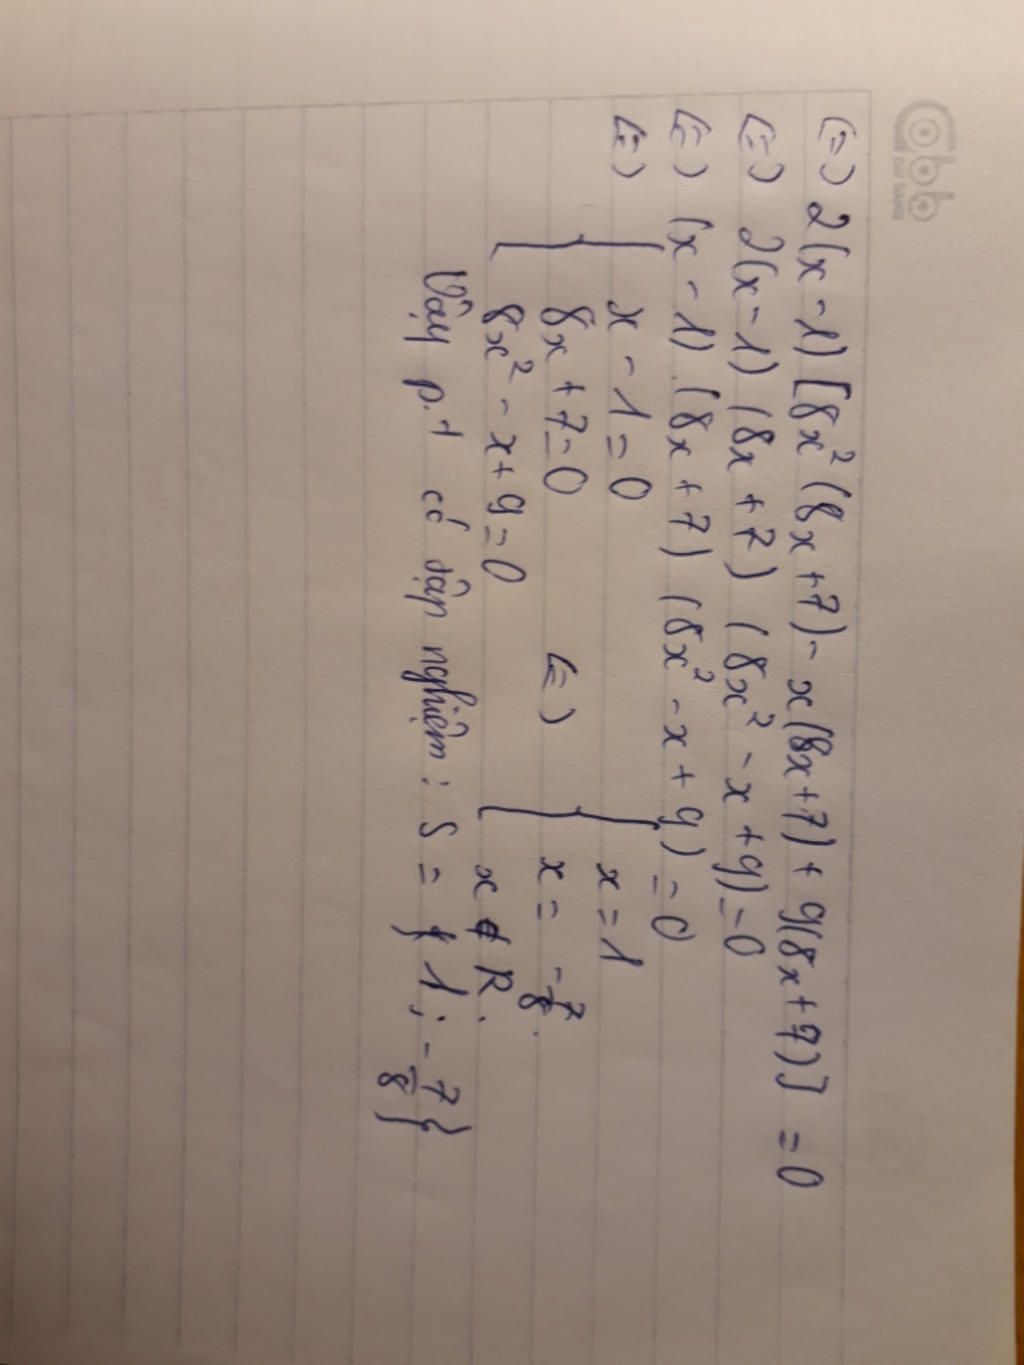 (=) 2(x - 1) [8x²(8x + 7) - x(8x + 7) + 9(8x + 7)] = 0
(=) 2(x - 1) (8x + 7) (8x² - x + 9) = 0
(=) (x - 1) (8x + 7) (8x² - x + 9) = 0
(=) [ x - 1 = 0
8x + 7 = 0 (=) [ x = 1
8x² - x + 9 = 0 x = -7/8.
x ∉ R.
Vậy p.t có tập nghiệm : S = { 1 ; -7/8 }